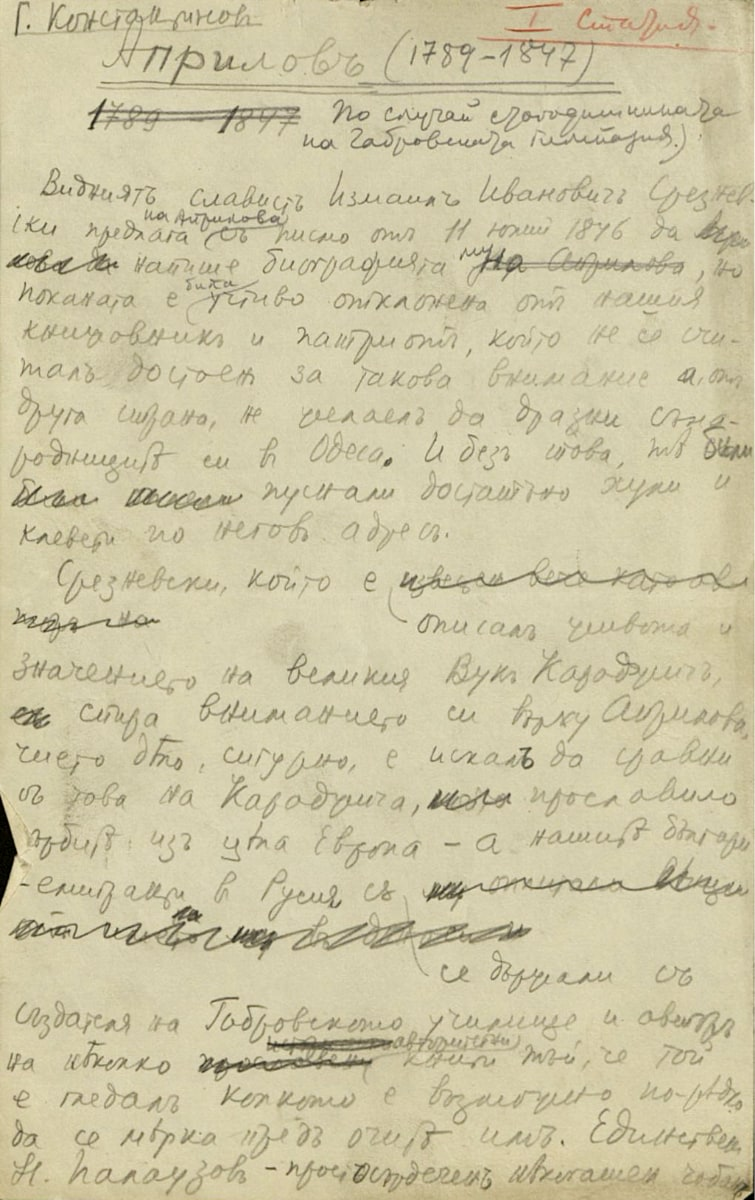 Г. Константиновъ
I статия.
Априловъ (1789-1847)
1789 - 1847 По случай стогодишнината
на Габровската гимназия.)
Видниятъ слависть Измаилъ Ивановичъ Срезнев-
ски предлага на Априлова съ писмо отъ 11 юний 1846 да
напише биографията му на Априлова, но
поканата е била учтиво отклонена отъ нашия
книжовникъ и патриотъ, който не се счи-
талъ достоенъ за такова внимание а, отъ
друга страна, не желаелъ да дразни съна-
родницитѣ си в Одеса. И безъ това, тѣ били
пускали достатъчно хули и
клевети по неговъ адресъ.
Срезневски, който е
описалъ живота и
значението на великия Вукъ Караджичъ,
спира вниманието си върху Априлова,
чието дѣло, сигурно, е искалъ да сравни
съ това на Караджича, прославило
сърбитѣ изъ цѣла Европа - а нашитѣ българи
-емигранти в Русия съ
се държали съ
създателя на Габровското училище и авторъ
на нѣколко книги тъй, че той
е гледалъ колкото е възможно по-рѣдко
да се мѣрка предъ очитѣ имъ. Единствен
Н. Палаузовъ - простосърдеченъ нѣкогашен